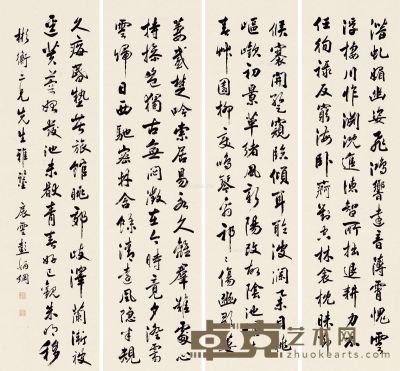 潛虬媚幽姿飛鴻響遠音薄霄愧雲
浮棲川怍淵沈進德智所拙退耕力不
任徇祿反窮海臥痾對空林衾枕昧節
候褰開暫窺臨傾耳聆波瀾舉目眺
嶇嶔初景革緒風新陽改故陰池塘生
春艸園柳變鳴禽祁祁傷豳歌萋
萋感楚吟索居易永久離羣難處心
持操豈獨古無悶徵在今時竟夕澄霽
雲歸日西馳密林含餘清遠峰隱半規
久痗昏墊苦旅館眺郊歧澤蘭漸被
逕芙蓉始發池未厭青春好已觀朱明移
彬衡二兄先生雅鑒 展雲彭
艺术网
zhuokearts.com